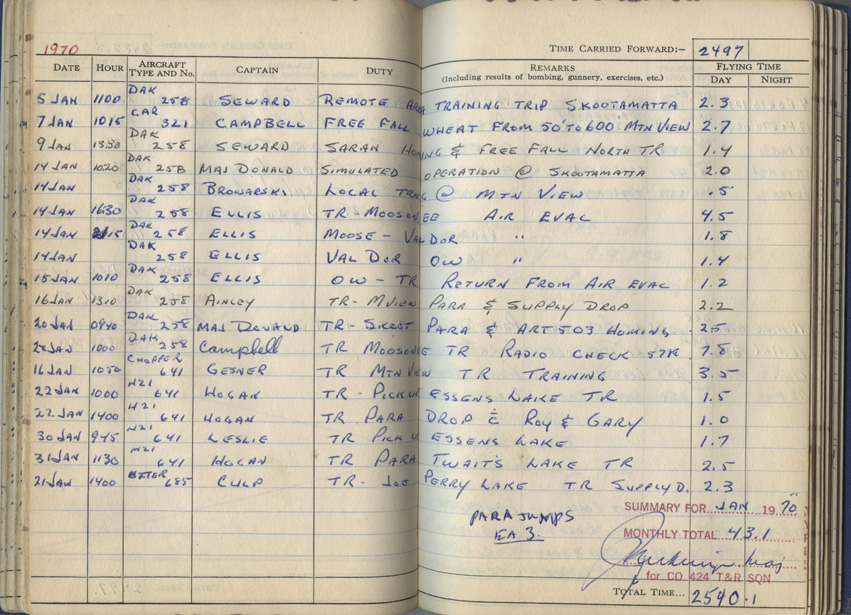 1970
TIME CARRIED FORWARD:- 2497
DATE HOUR AIRCRAFT TYPE AND No. CAPTAIN DUTY REMARKS (Including results of bombing, gunnery, exercises, etc.) FLYING TIME DAY NIGHT
5 JAN 1100 DAK 258 SEWARD REMOTE AREA TRAINING TRIP SKOOTAMATTA 2.3
7 JAN 1015 CAR 321 CAMPBELL FREE FALL WHEAT FROM 50' TO 600 MTN VIEW 2.7
9 JAN 1330 DAK 258 SEWARD SARAH HOMING & FREE FALL NORTH TR 1.4
14 JAN 1020 DAK 258 MAJ DONALD SIMULATED OPERATION @ SKOOTAMATTA 2.0
14 JAN DAK 258 BROWARSKI LOCAL TRNG @ MTN VIEW .5
14 JAN 1630 DAK 258 ELLIS TR - MOOSONEE AIR EVAL 4.5
14 JAN 2115 DAK 258 ELLIS MOOSE - VAL DOR " 1.8
14 JAN DAK 258 ELLIS VAL DOR OW " 1.4
15 JAN 1010 DAK 258 ELLIS OW - TR RETURN FROM AIR EVAL 1.2
16 JAN 1310 DAK 258 AINLEY TR - MVIEW PARA & SUPPLY DROP 2.2
20 JAN 0940 DAK 258 MAJ DONALD TR - SKOOT PARA & ART 503 HOMING 2.5
JAN 1000 DAK 258 Campbell TR MOOSONEE TR RADIO CHECK 7.8
16 JAN 1050 CHOPPER 641 GESNER TR MTN VIEW TR TRAINING 3.5
22 JAN 1000 H21 641 HOGAN TR - PICKUP ESSENS LAKE TR 1.5
22 JAN 1400 H21 641 HOGAN TR PARA DROP c̄ ROY & GARY 1.0
30 JAN 945 H21 641 LESLIE TR PICK U ESSENS LAKE 1.7
31 JAN 1130 H21 641 HOGAN TR PARA TWAITS LAKE TR 2.5
21 JAN 1400 685 CULP TR - JOE PERRY LAKE TR SUPPLY D. 2.3
PARA JUMPS
EA 3.
SUMMARY FOR JAN 1970
MONTHLY TOTAL 43.1
Maj
for CO 424 T&R SQN
TOTAL TIME... 2540.1